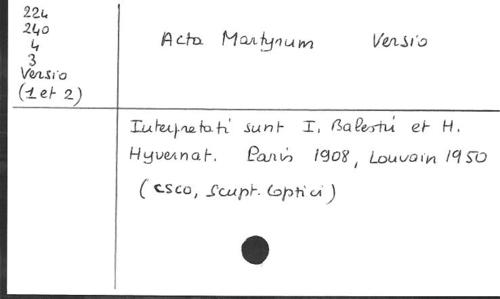 224
240
4
3
Versio
(1 et 2)
Acta Martyrum Versio
Interpretati sunt I. Balestri et H.
Hyvernat. Paris 1908, Louvain 1950
(CSCO, Script. Coptici)